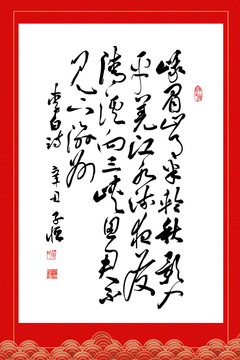 峨眉山月半輪秋影入
平羌江水流夜發
清溪向三峽思君不
見下渝州
李白詩 辛丑